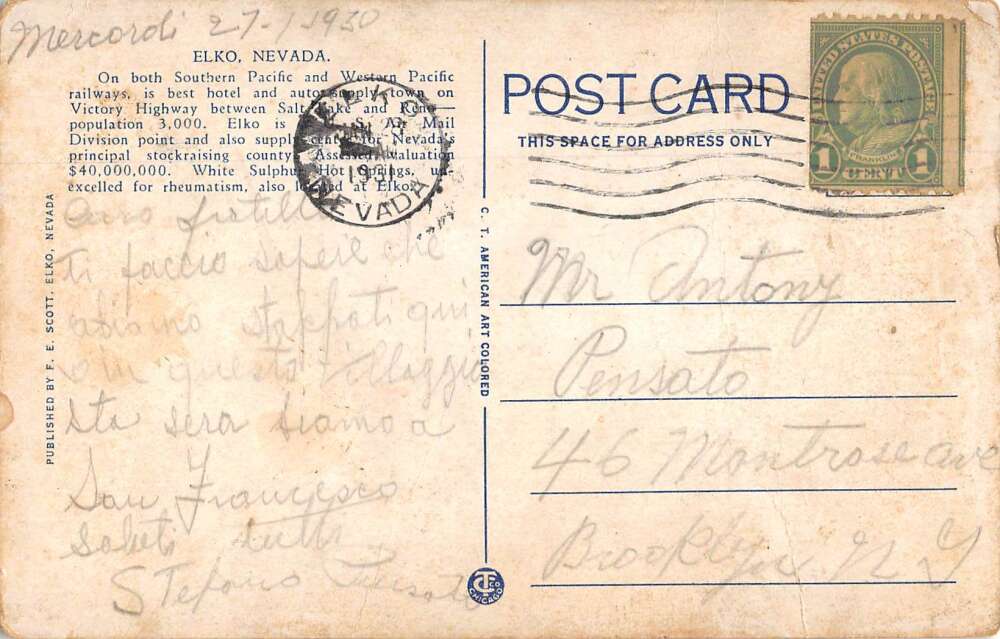 Mercordi 27-1-1930
ELKO, NEVADA.
On both Southern Pacific and Western Pacific
railways, is best hotel and auto supply town on
Victory Highway between Salt Lake and Reno—
population 3,000. Elko is Air Mail
Division point and also supply center for Nevada's
principal stockraising county. Assessed valuation
$40,000,000. White Sulphur Hot Springs, un-
excelled for rheumatism, also located at Elko.
Caro fratello
ti faccio sapere che
abiamo stoppati qui
in questo villaggio
sta sera siamo a
San Francesco
saluti tutti
Stefano Pensato
PUBLISHED BY F. E. SCOTT, ELKO, NEVADA
C. T. AMERICAN ART COLORED
ELKO
JAN
NEVADA
POST CARD
THIS SPACE FOR ADDRESS ONLY
UNITED STATES POSTAGE
FRANKLIN
1 CENT 1
Mr Antony
Pensato
46 Montrose ave
Brooklyn N Y
CT CO
CHICAGO